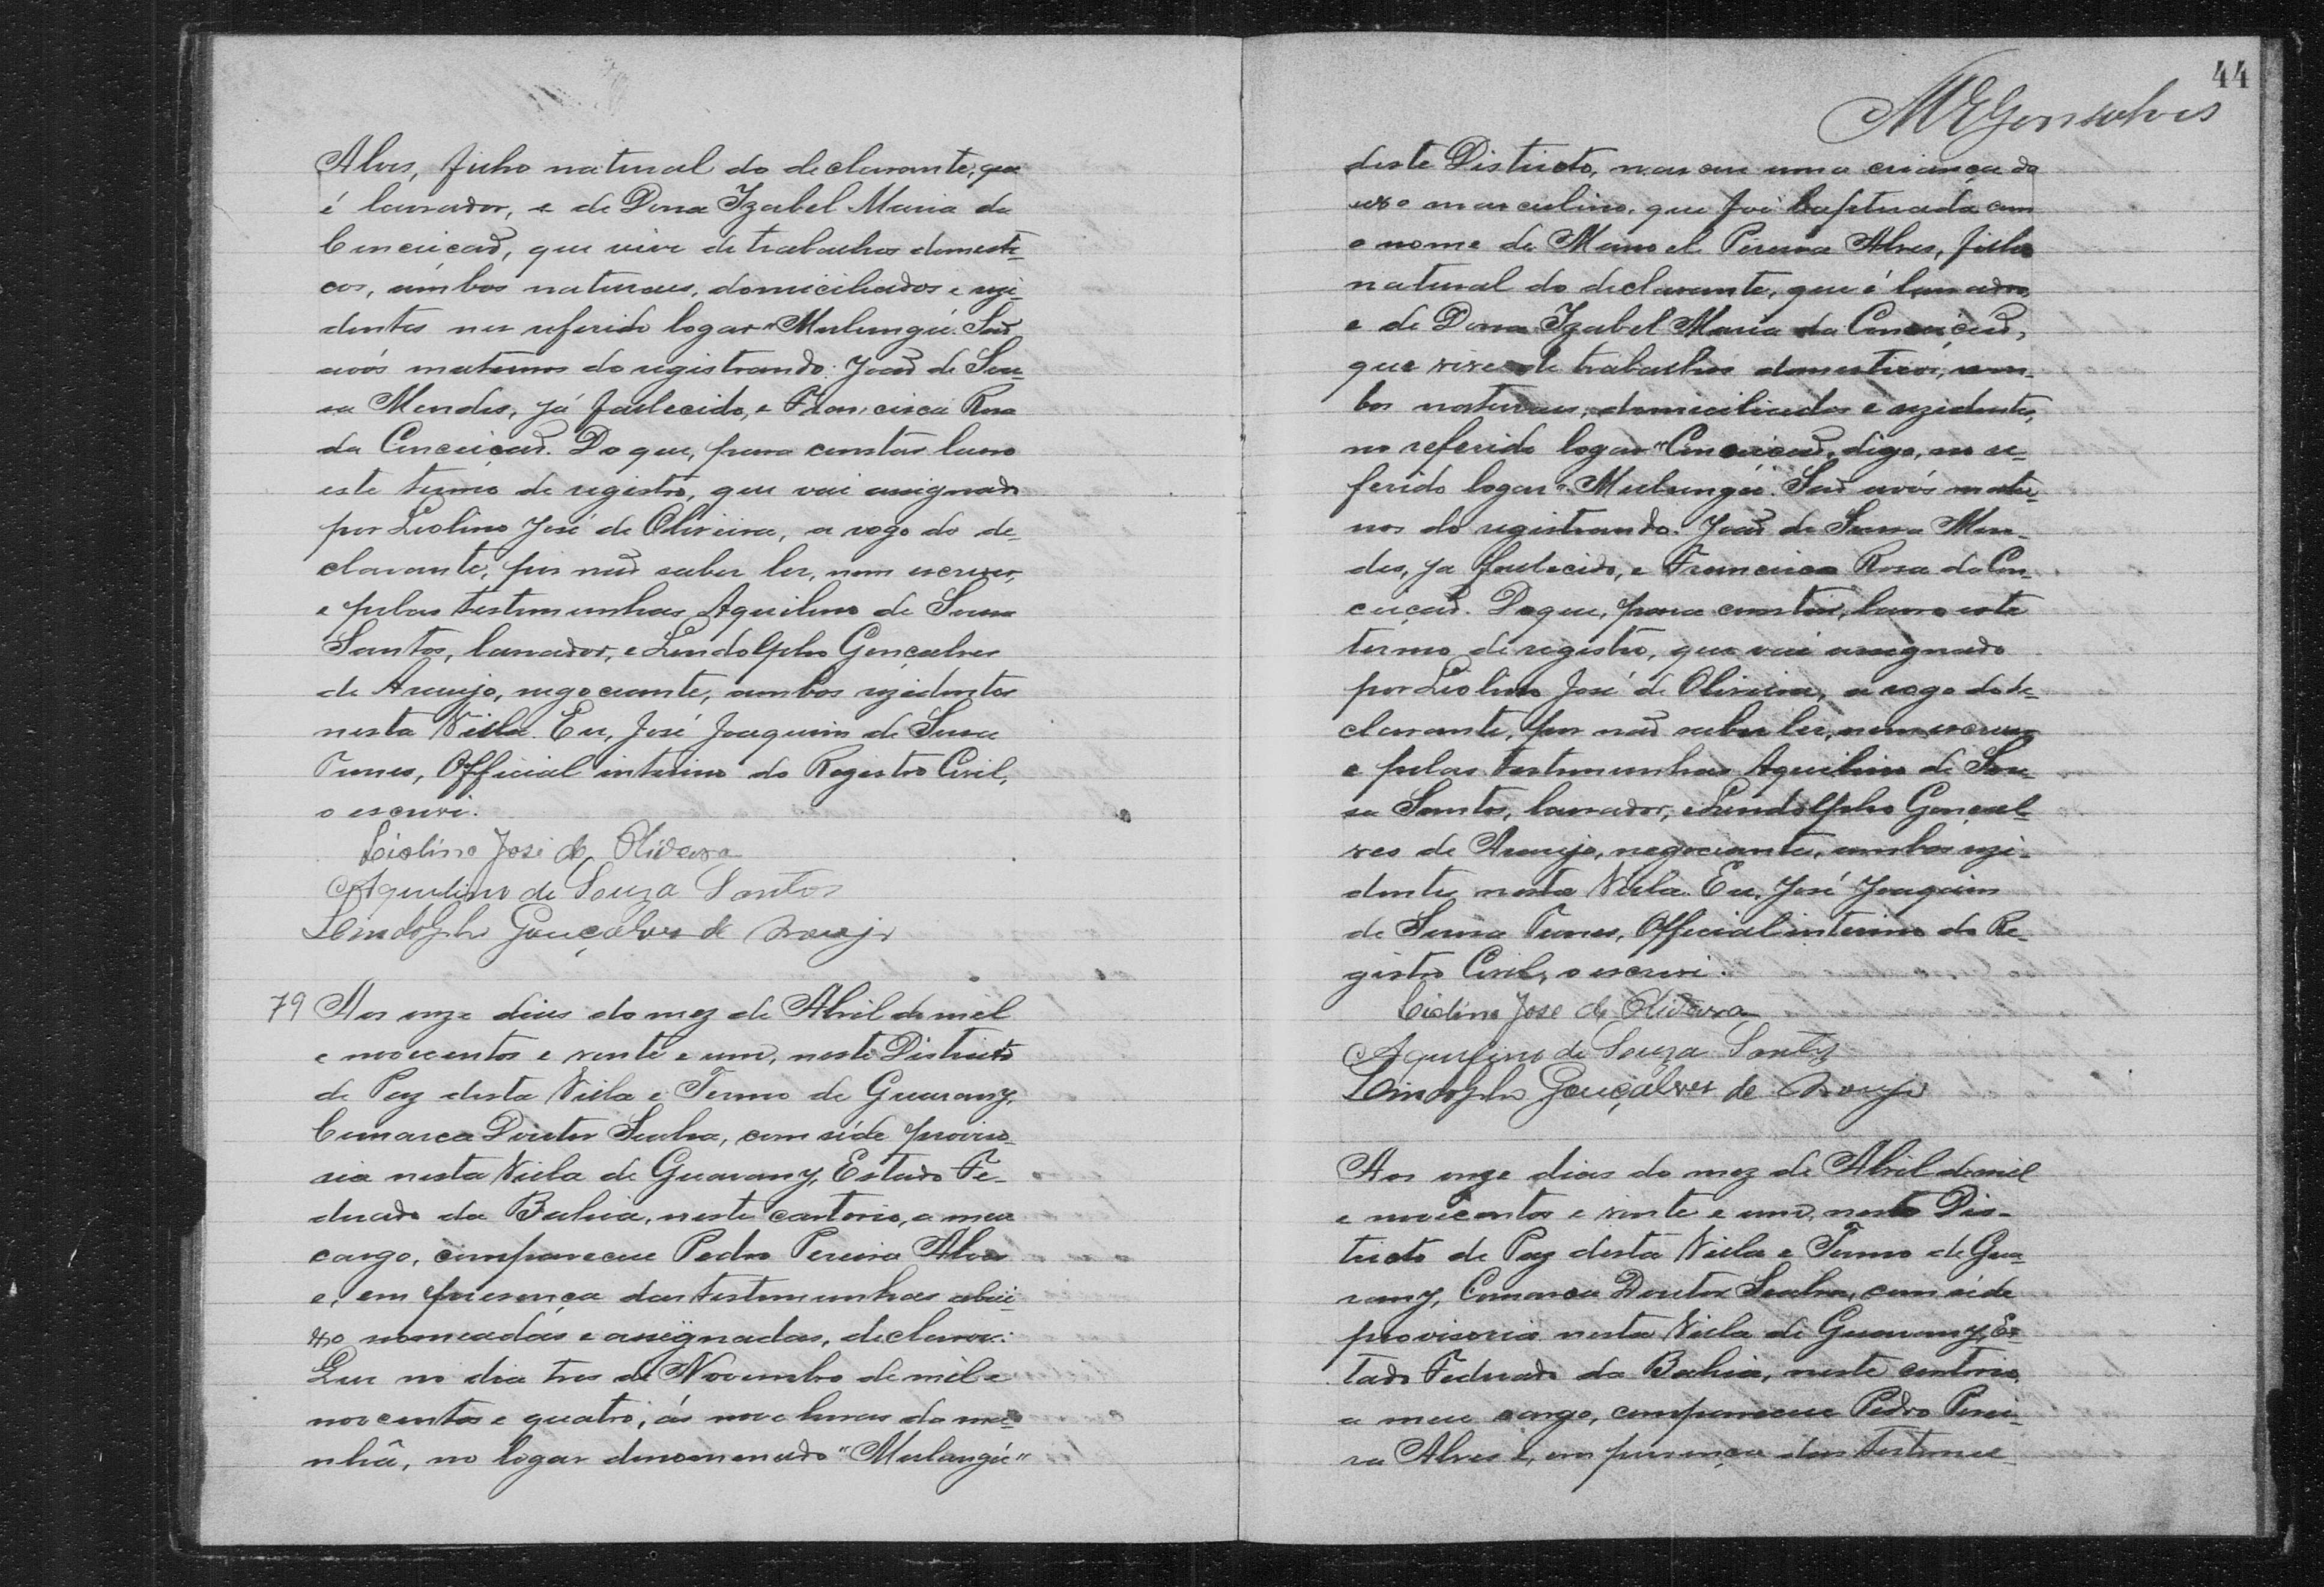 Alves, filho natural do declarante, que
é lavrador, e de Dona Izabel Maria da
Conceição, que vive de trabalhos domesti-
cos, ambos naturaes, domiciliados e rezi-
dentes no referido logar "Mulungú. São
avós maternos do registrando: João de Sou-
sa Mendes, já fallecido, e Francisca Rosa
da Conceição. Do que, para constar lavro
este termo de registro, que vai assignado
por Liolino José de Oliveira, a rogo do de-
clarante, por não saber ler, nem escrever,
e pelas testemunhas Aquilino de Sousa
Santos, lavrador, e Lindolpho Gonçalves
de Araujo, negociante, ambos rezidentes
nesta Villa. Eu, José Joaquim de Sousa
Official interino do Registro Civil,
o escrevi.
Liolino José de Oliveira
Aquilino de Souza Santos
Lindolpho Gonçalves de Araujo
79 Aos onze dias do mez de Abril de mil
e novecentos e vinte e um, neste Districto
de Paz desta Villa e Termo de Guarany,
Comarca Doutor Seabra, com séde proviso-
ria nesta Villa de Guarany, Estado Fe-
derado da Bahia, neste cartorio, a meu
cargo, compareceu Pedro Pereira Alves
e, em presença das testemunhas abai-
xo nomeadas e assignadas, declarou:
Que no dia tres de Novembro de mil e
novecentos e quatro, ás nove horas da ma-
nhã, no logar denominado "Mulungú"
44
MEGonsalves
deste Districto, nasceu uma criança do
sexo masculino, que foi baptisada com
o nome de Manoel Pereira Alves, filho
natural do declarante, que é lavrador,
e de Dona Izabel Maria da Conceição,
que vive de trabalhos domesticos, am-
bos naturaes, domiciliados e rezidentes,
no referido logar "Conceição, digo, no re-
ferido logar "Mulungú. São avós mater-
nos do registrando: João de Sousa Men-
des, ja fallecido, e Francisca Rosa da Con-
ceição. Do que, para constar, lavro este
termo de registro, que vai assignado
por Liolino José de Oliveira, a rogo do de-
clarante, por não saber ler, nem escrever
e pelas testemunhas Aquilino de Sou-
sa Santos, lavrador, e Lindolpho Gonçal-
ves de Araujo, negociante, ambos rezi-
dentes nesta Villa. Eu, José Joaquim
de Sousa Official interino do Re-
gistro Civil, o escrevi.
Liolino José de Oliveira
Aquilino de Souza Santos
Lindolpho Gonçalves de Araujo
Aos onze dias do mez de Abril de mil
e novecentos e vinte e um, neste Dis-
tricto de Paz desta Villa e Termo de Gua-
rany, Comarca Doutor Seabra, com séde
provisoria nesta Villa de Guarany, Es-
tado Federado da Bahia, neste cartorio,
a meu cargo, compareceu Pedro Perei-
ra Alves e, em presença das testemu-